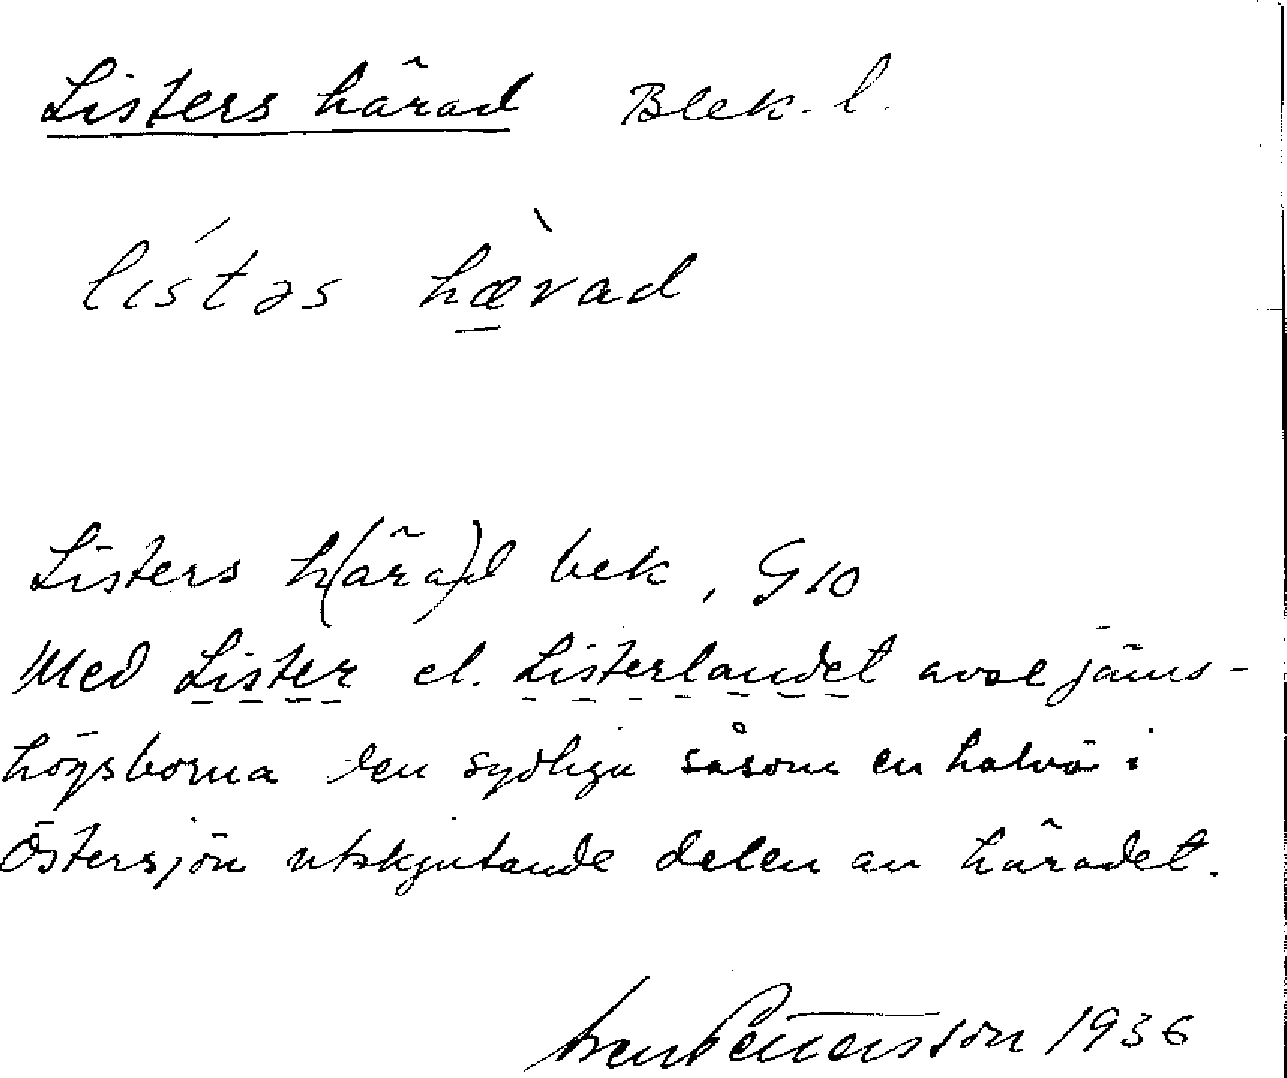 Listers härad Blek. l.
lístəs hæ̀rad
Listers h(ära)d bek, G10
Med Lister el. Listerlandet avse jäms-
högsborna den sydliga såsom en halvö i
Östersjön utskjutande delen av häradet.
Sven Pettersson 1936